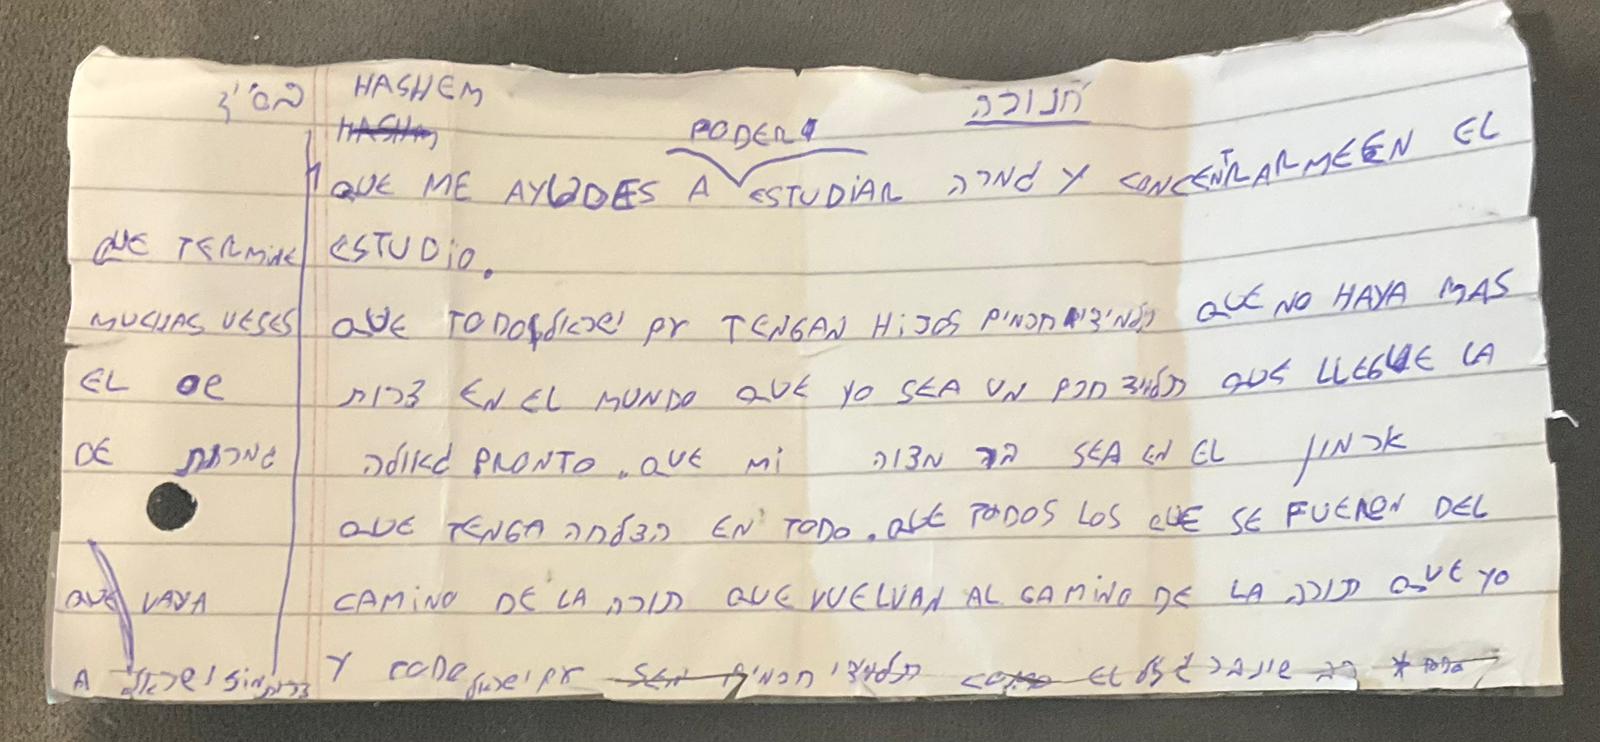 בס''ד
HASHEM
חנוכה
PODER
QUE ME AYUDES A ESTUDIAR גמרה Y CONCENTRARME EN EL
ESTUDIO.
QUE TODO עם ישראל TENGAN HIJOS תלמידי חכמים QUE NO HAYA MAS
צרות EN EL MUNDO QUE YO SEA UN תלמיד חכם QUE LLEGUE LA
גאולה PRONTO. QUE MI בר מצוה SEA EN EL
QUE TENGA הצלחה EN TODO. QUE TODOS LOS QUE SE FUERON DEL
CAMINO DE LA תורה QUE VUELVAN AL CAMINO DE LA תורה QUE YO
Y TODO עם ישראל תלמידי חכמים
QUE TERMINE
MUCHAS VESES
EL
DE
QUE VAYA
A ארץ ישראל